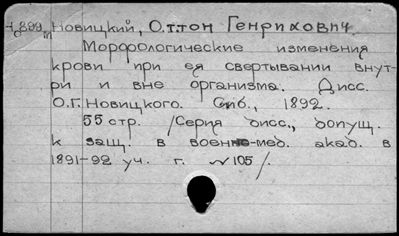 Новицкий, Оттон Генрихович.
Морфологические изменения
крови при ея свертывании внут-
ри и вне организма. Дисс.
О.Г. Новицкого. Спб., 1892.
55 стр. /Серия дисс., допущ.
к защ. в военно-мед. акад. в
1891-92 уч. г. №105/.